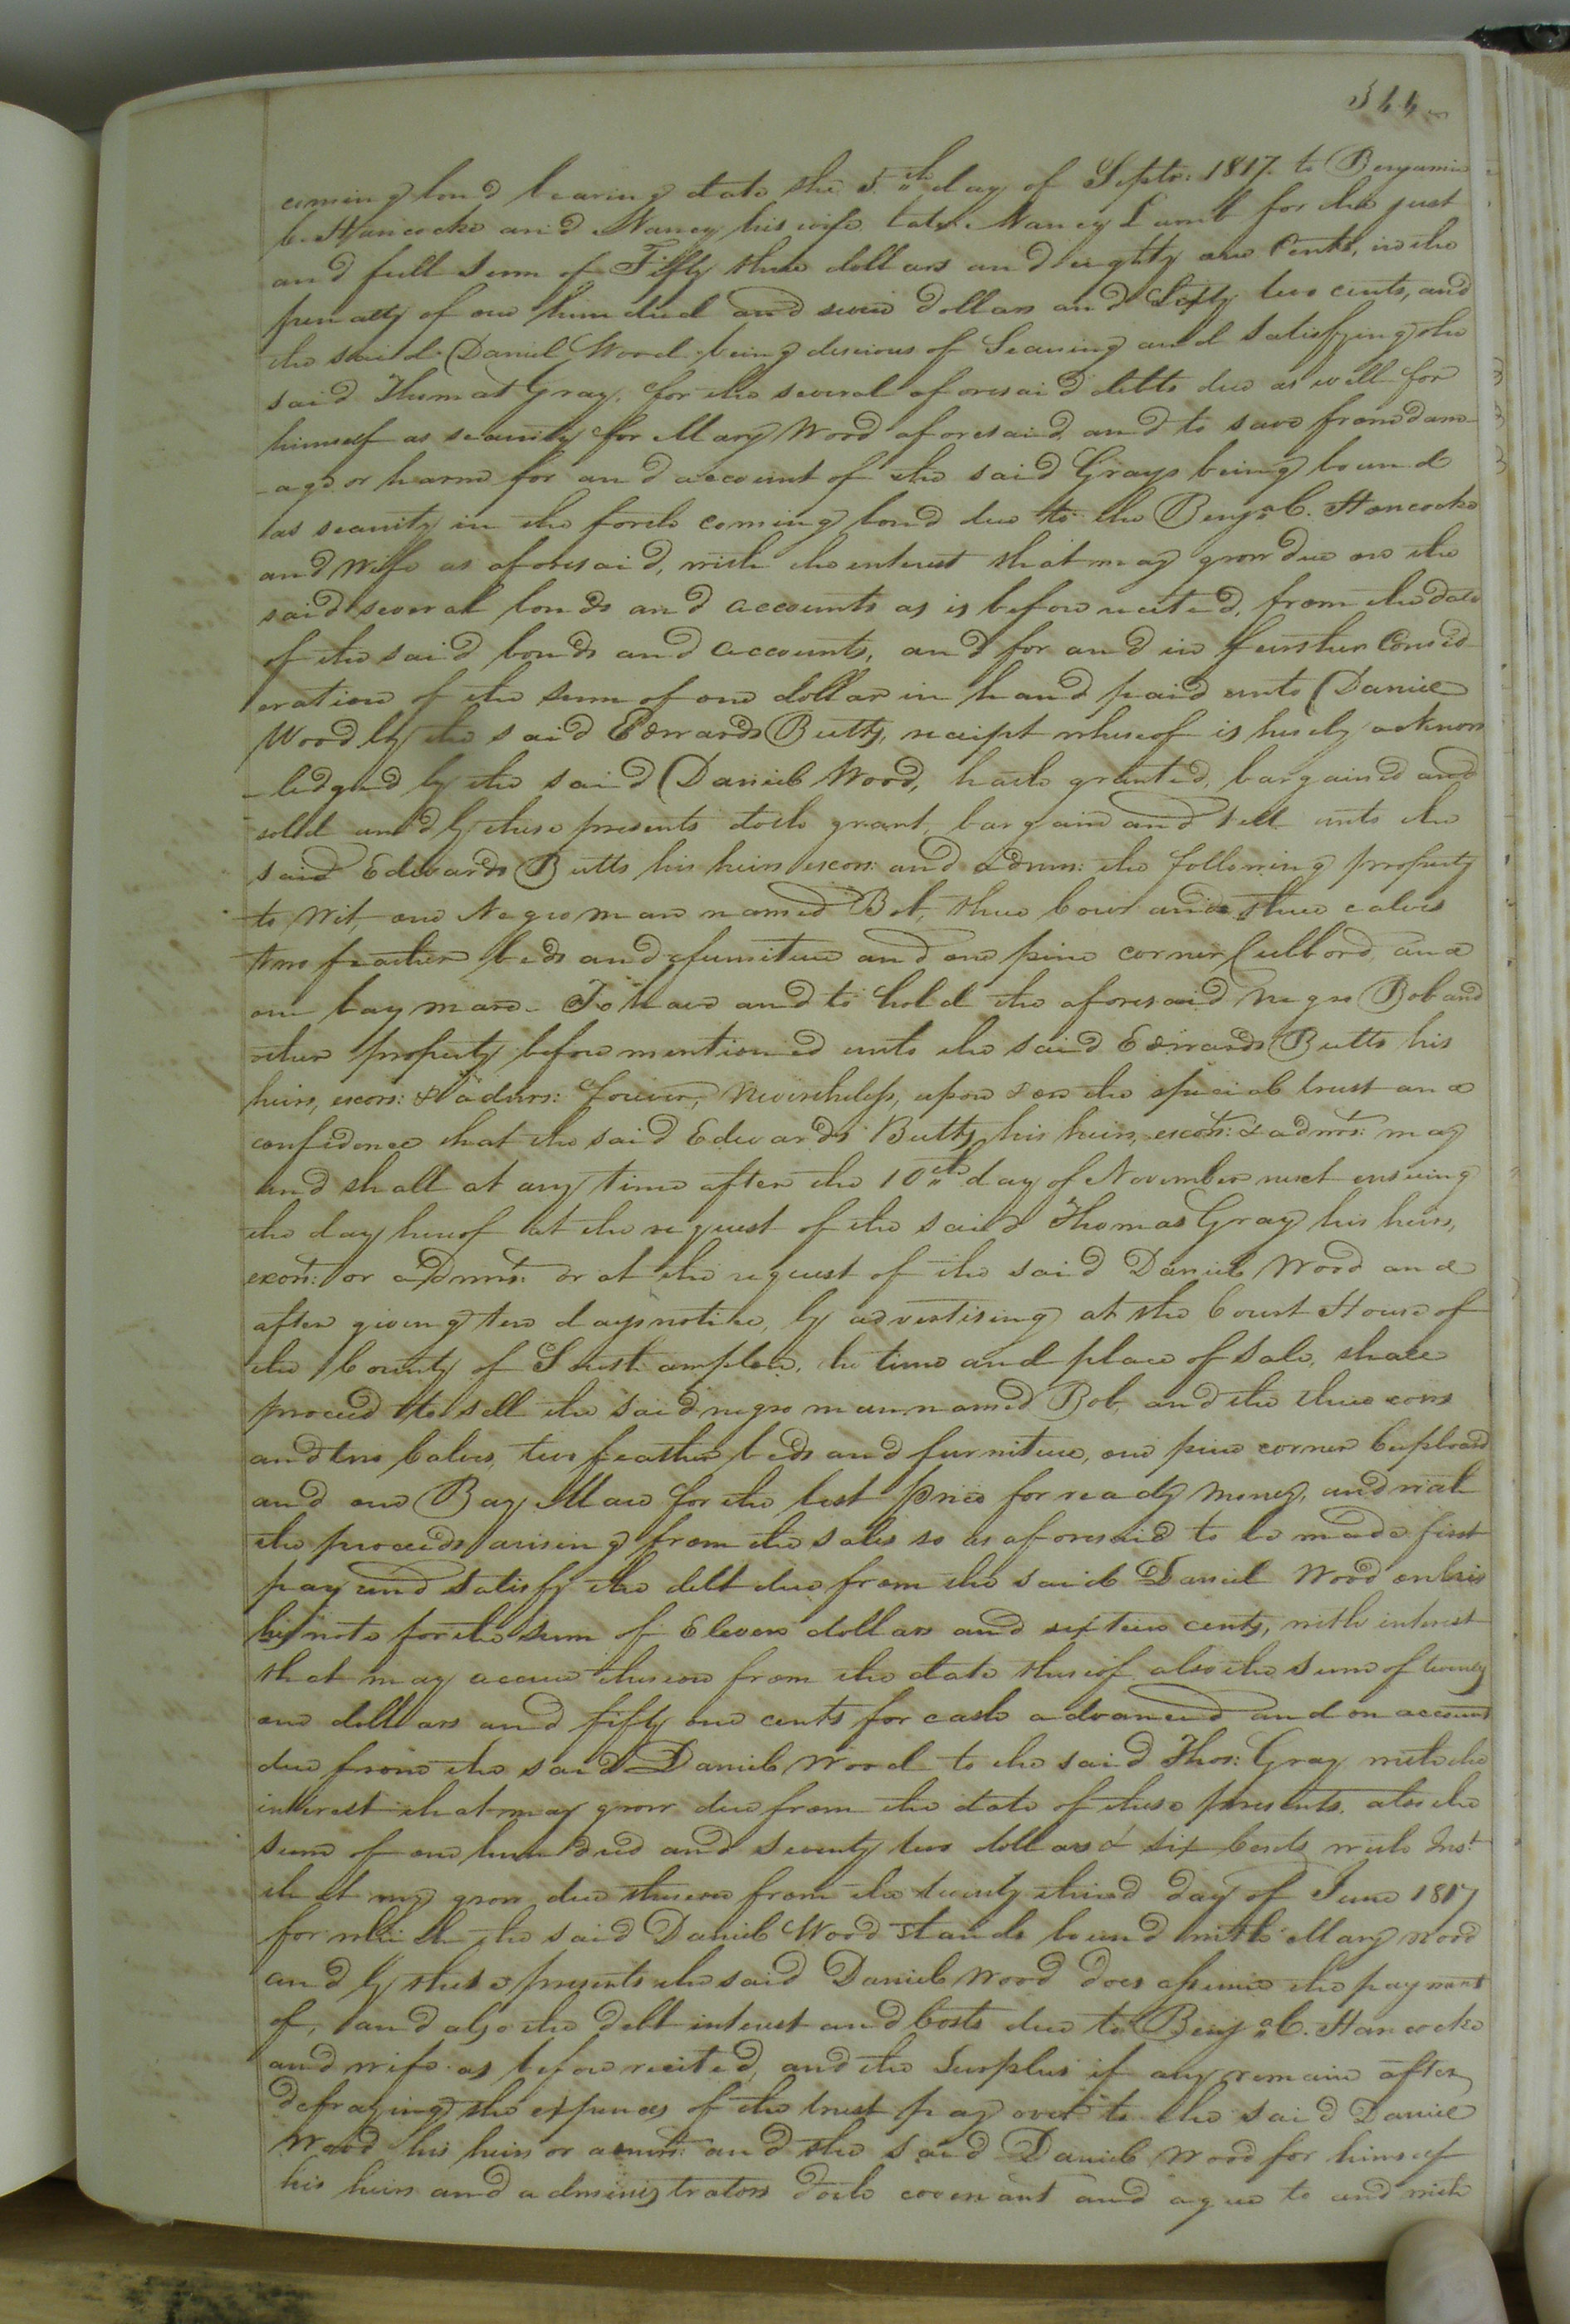 344
coming bond bearing date the 5th day of Septr: 1817. to Benjamin
C. Hancocke and Nancy his wife late Nancy Lamb for the just
and full sum of Fifty three dollars and eighty one Cents, in the
penalty of one hundred and seven dollars and Sixty two cents, and
the said Daniel Wood being desirous of Securing and Satisfying the
said Thomas Gray, for the several aforesaid debts due as well for
himself as security for Mary Wood aforesaid and to save from dam-
-age or harm for and account of the said Grays being bound
as security in the forth coming bond due to the Benja. C. Hancocke
and Wife as aforesaid, with the interest that may grow due on the
said several bonds and accounts as is before recited, from the date
of the said bonds and accounts, and for and in further Consid-
eration of the sum of one dollar in hand paid unto Daniel
Wood by the said Edwards Butts, receipt whereof is hereby acknow
-ledged by the said Daniel Wood, hath granted, bargained and
sold and by these presents doth grant, bargain and sell unto the
said Edwards Butts his heirs excors: and admrs: the following property
to wit, one Negro man named Bob, three cows and three calves
two feather beds and furniture and one pine corner Cubbord, and
one bay mare. To have and to hold the aforesaid Negro Bob and
other property before mentioned unto the said Edwards Butts his
heirs, excors: & admrs: forever, Nevertheless, upon & on the special trust and
confidence that the said Edwards Butts, his heirs, excors: & admrs: may
and shall at any time after the 10th day of November next ensuing
the day hereof at the request of the said Thomas Gray his heirs,
excors: or admrs: or at the request of the said Daniel Wood and
after giving ten days notice, by advertising at the Court House of
the County of Southampton, the time and place of Sale, shall
proceed to sell the said negro man named Bob, and the three cows
and two Calves, two feather beds and furniture, one pine corner Cupboard
and one Bay Mare for the best price for ready money, and with
the proceeds arising from the sales so as aforesaid to be made first
pay and Satisfy the debt due from the said Daniel Wood on his
his note for the sum of Eleven dollars and sixteen cents, with interest
that may accrue thereon from the date thereof also the sum of twenty
one dollars and fifty one cents for cash advanced and on account
due from the said Daniel Wood to the said Thos: Gray with the
interest that may grow due from the date of these presents. also the
sum of one hundred and seventy two dollars & six Cents with Inst
that may grow due thereon from the twenty third day of June 1817
for which the said Daniel Wood stands bound with Mary Wood
and by these presents the said Daniel Wood does assume the payment
of, and also the debt interest and Costs due to Benja. C. Hancocke
and wife as before recited, and the Surplus if any remain after
defraying the expences of the trust pay over to the said Daniel
Wood his heirs or admrs: and the said Daniel Wood for himself
his heirs and administrators doth covenant and agree to and with